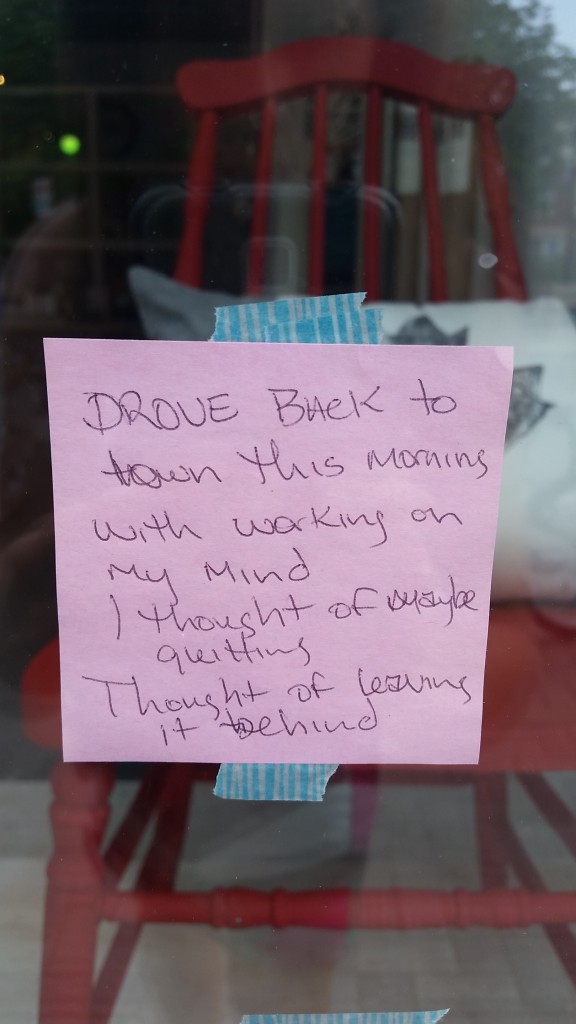 DROVE BACK to
town this morning
with working on
my mind
I thought of maybe
quitting
Thought of leaving
it behind